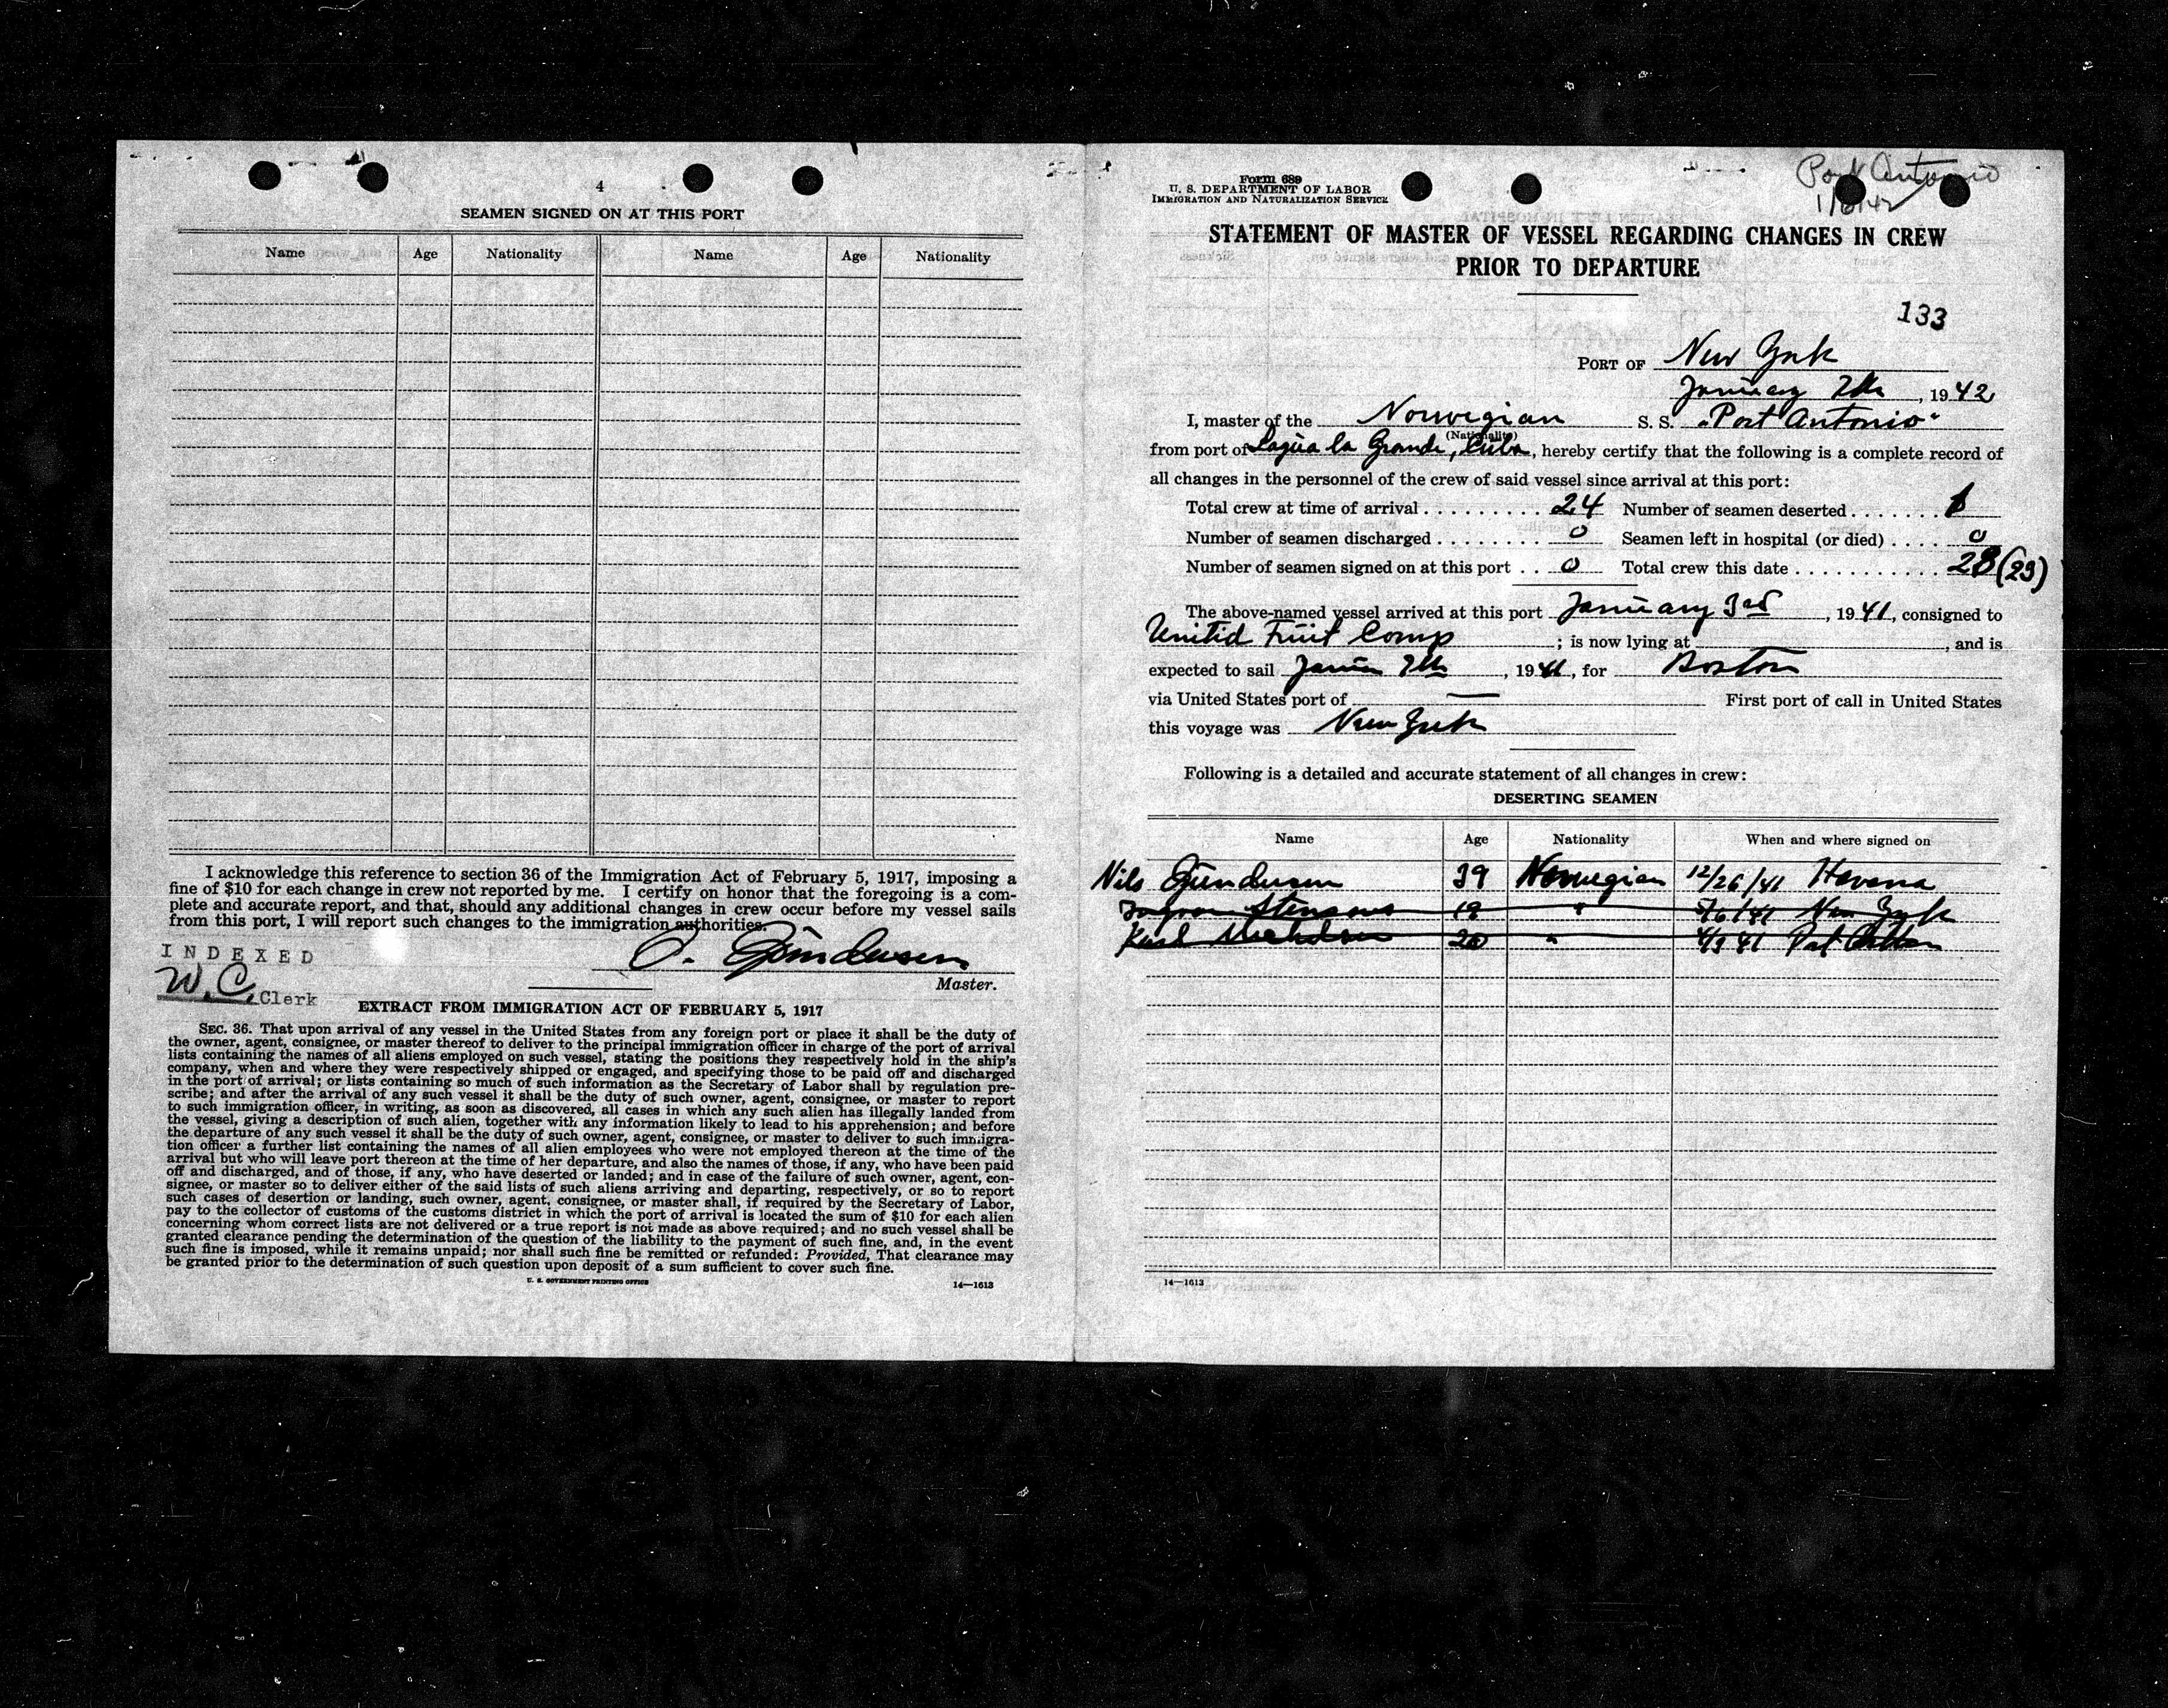 4
SEAMEN SIGNED ON AT THIS PORT
Name Age Nationality Name Age Nationality
I acknowledge this reference to section 36 of the Immigration Act of February 5, 1917, imposing a
fine of $10 for each change in crew not reported by me. I certify on honor that the foregoing is a com-
plete and accurate report, and that, should any additional changes in crew occur before my vessel sails
from this port, I will report such changes to the immigration authorities.
INDEXED
W.C. Clerk
O. Gundersen
Master.
EXTRACT FROM IMMIGRATION ACT OF FEBRUARY 5, 1917
SEC. 36. That upon arrival of any vessel in the United States from any foreign port or place it shall be the duty of
the owner, agent, consignee, or master thereof to deliver to the principal immigration officer in charge of the port of arrival
lists containing the names of all aliens employed on such vessel, stating the positions they respectively hold in the ship's
company, when and where they were respectively shipped or engaged, and specifying those to be paid off and discharged
in the port of arrival; or lists containing so much of such information as the Secretary of Labor shall by regulation pre-
scribe; and after the arrival of any such vessel it shall be the duty of such owner, agent, consignee, or master to report
to such immigration officer, in writing, as soon as discovered, all cases in which any such alien has illegally landed from
the vessel, giving a description of such alien, together with any information likely to lead to his apprehension; and before
the departure of any such vessel it shall be the duty of such owner, agent, consignee, or master to deliver to such immigra-
tion officer a further list containing the names of all alien employees who were not employed thereon at the time of the
arrival but who will leave port thereon at the time of her departure, and also the names of those, if any, who have been paid
off and discharged, and of those, if any, who have deserted or landed; and in case of the failure of such owner, agent, con-
signee, or master so to deliver either of the said lists of such aliens arriving and departing, respectively, or so to report
such cases of desertion or landing, such owner, agent, consignee, or master shall, if required by the Secretary of Labor,
pay to the collector of customs of the customs district in which the port of arrival is located the sum of $10 for each alien
concerning whom correct lists are not delivered or a true report is not made as above required; and no such vessel shall be
granted clearance pending the determination of the question of the liability to the payment of such fine, and, in the event
such fine is imposed, while it remains unpaid; nor shall such fine be remitted or refunded: Provided, That clearance may
be granted prior to the determination of such question upon deposit of a sum sufficient to cover such fine.
U. S. GOVERNMENT PRINTING OFFICE 14—1613
Form 689
U. S. DEPARTMENT OF LABOR
IMMIGRATION AND NATURALIZATION SERVICE
Port Antonio
STATEMENT OF MASTER OF VESSEL REGARDING CHANGES IN CREW
PRIOR TO DEPARTURE
133
PORT OF New York
January 7th, 1942
I, master of the Norwegian S. S. "Port Antonio"
(Nationality)
from port of Sagua la Grande, Cuba, hereby certify that the following is a complete record of
all changes in the personnel of the crew of said vessel since arrival at this port:
Total crew at time of arrival 24 Number of seamen deserted 1
Number of seamen discharged 0 Seamen left in hospital (or died) 0
Number of seamen signed on at this port 0 Total crew this date 23 (23)
The above-named vessel arrived at this port January 3rd, 1941, consigned to
United Fruit Comp; is now lying at , and is
expected to sail 7th, 1941, for Boston
via United States port of — First port of call in United States
this voyage was New York
Following is a detailed and accurate statement of all changes in crew:
DESERTING SEAMEN
Name Age Nationality When and where signed on
Nils Gundersen 39 Norwegian 12/26/41 Havana
19 " New York
20 "
14—1613